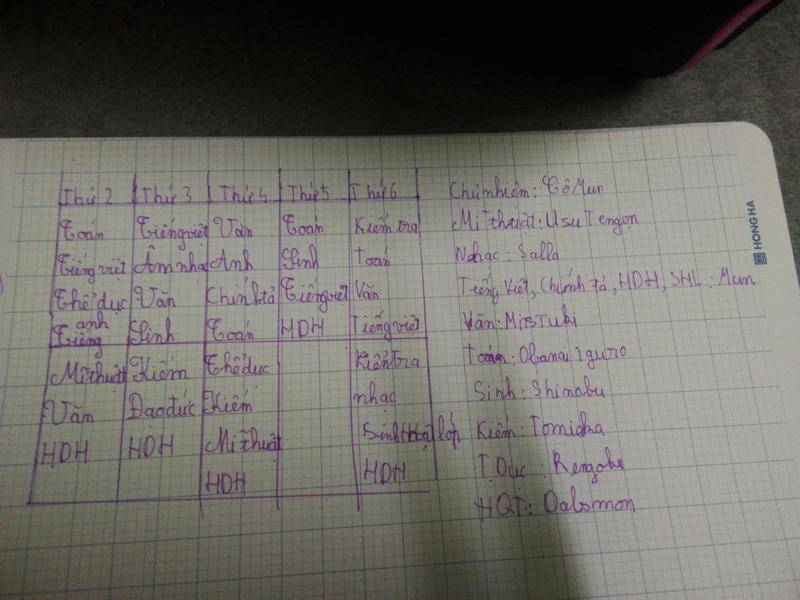 Thứ 2 Thứ 3 Thứ 4 Thứ 5 Thứ 6
Toán Tiếng việt Văn Toán Kiểm tra
Tiếng việt Âm nhạ Anh Sinh toán
Thể dục Văn Chính tả Tiếng việt Văn
Tiếng anh Sinh Toán HDH Tiếng việt
Mĩ thuật Kiếm Thể dục Kiểm tra
Văn Đạo đức Kiếm nhạc
HDH HDH Mĩ thuật Sinh hoạt lớp
HDH HDH
Chủ nhiệm: Cô Mun
Mĩ thuật: Usu Tengen
Nhạc: Salla
Tiếng Việt, Chính tả, HDH, SHL: Mun
Văn: MitsTuki
Toán: Obanai Iguro
Sinh: Shinobu
Kiếm: Tomioka
T Dục: Rengoku
HQT: Dalsmon
HONG HA